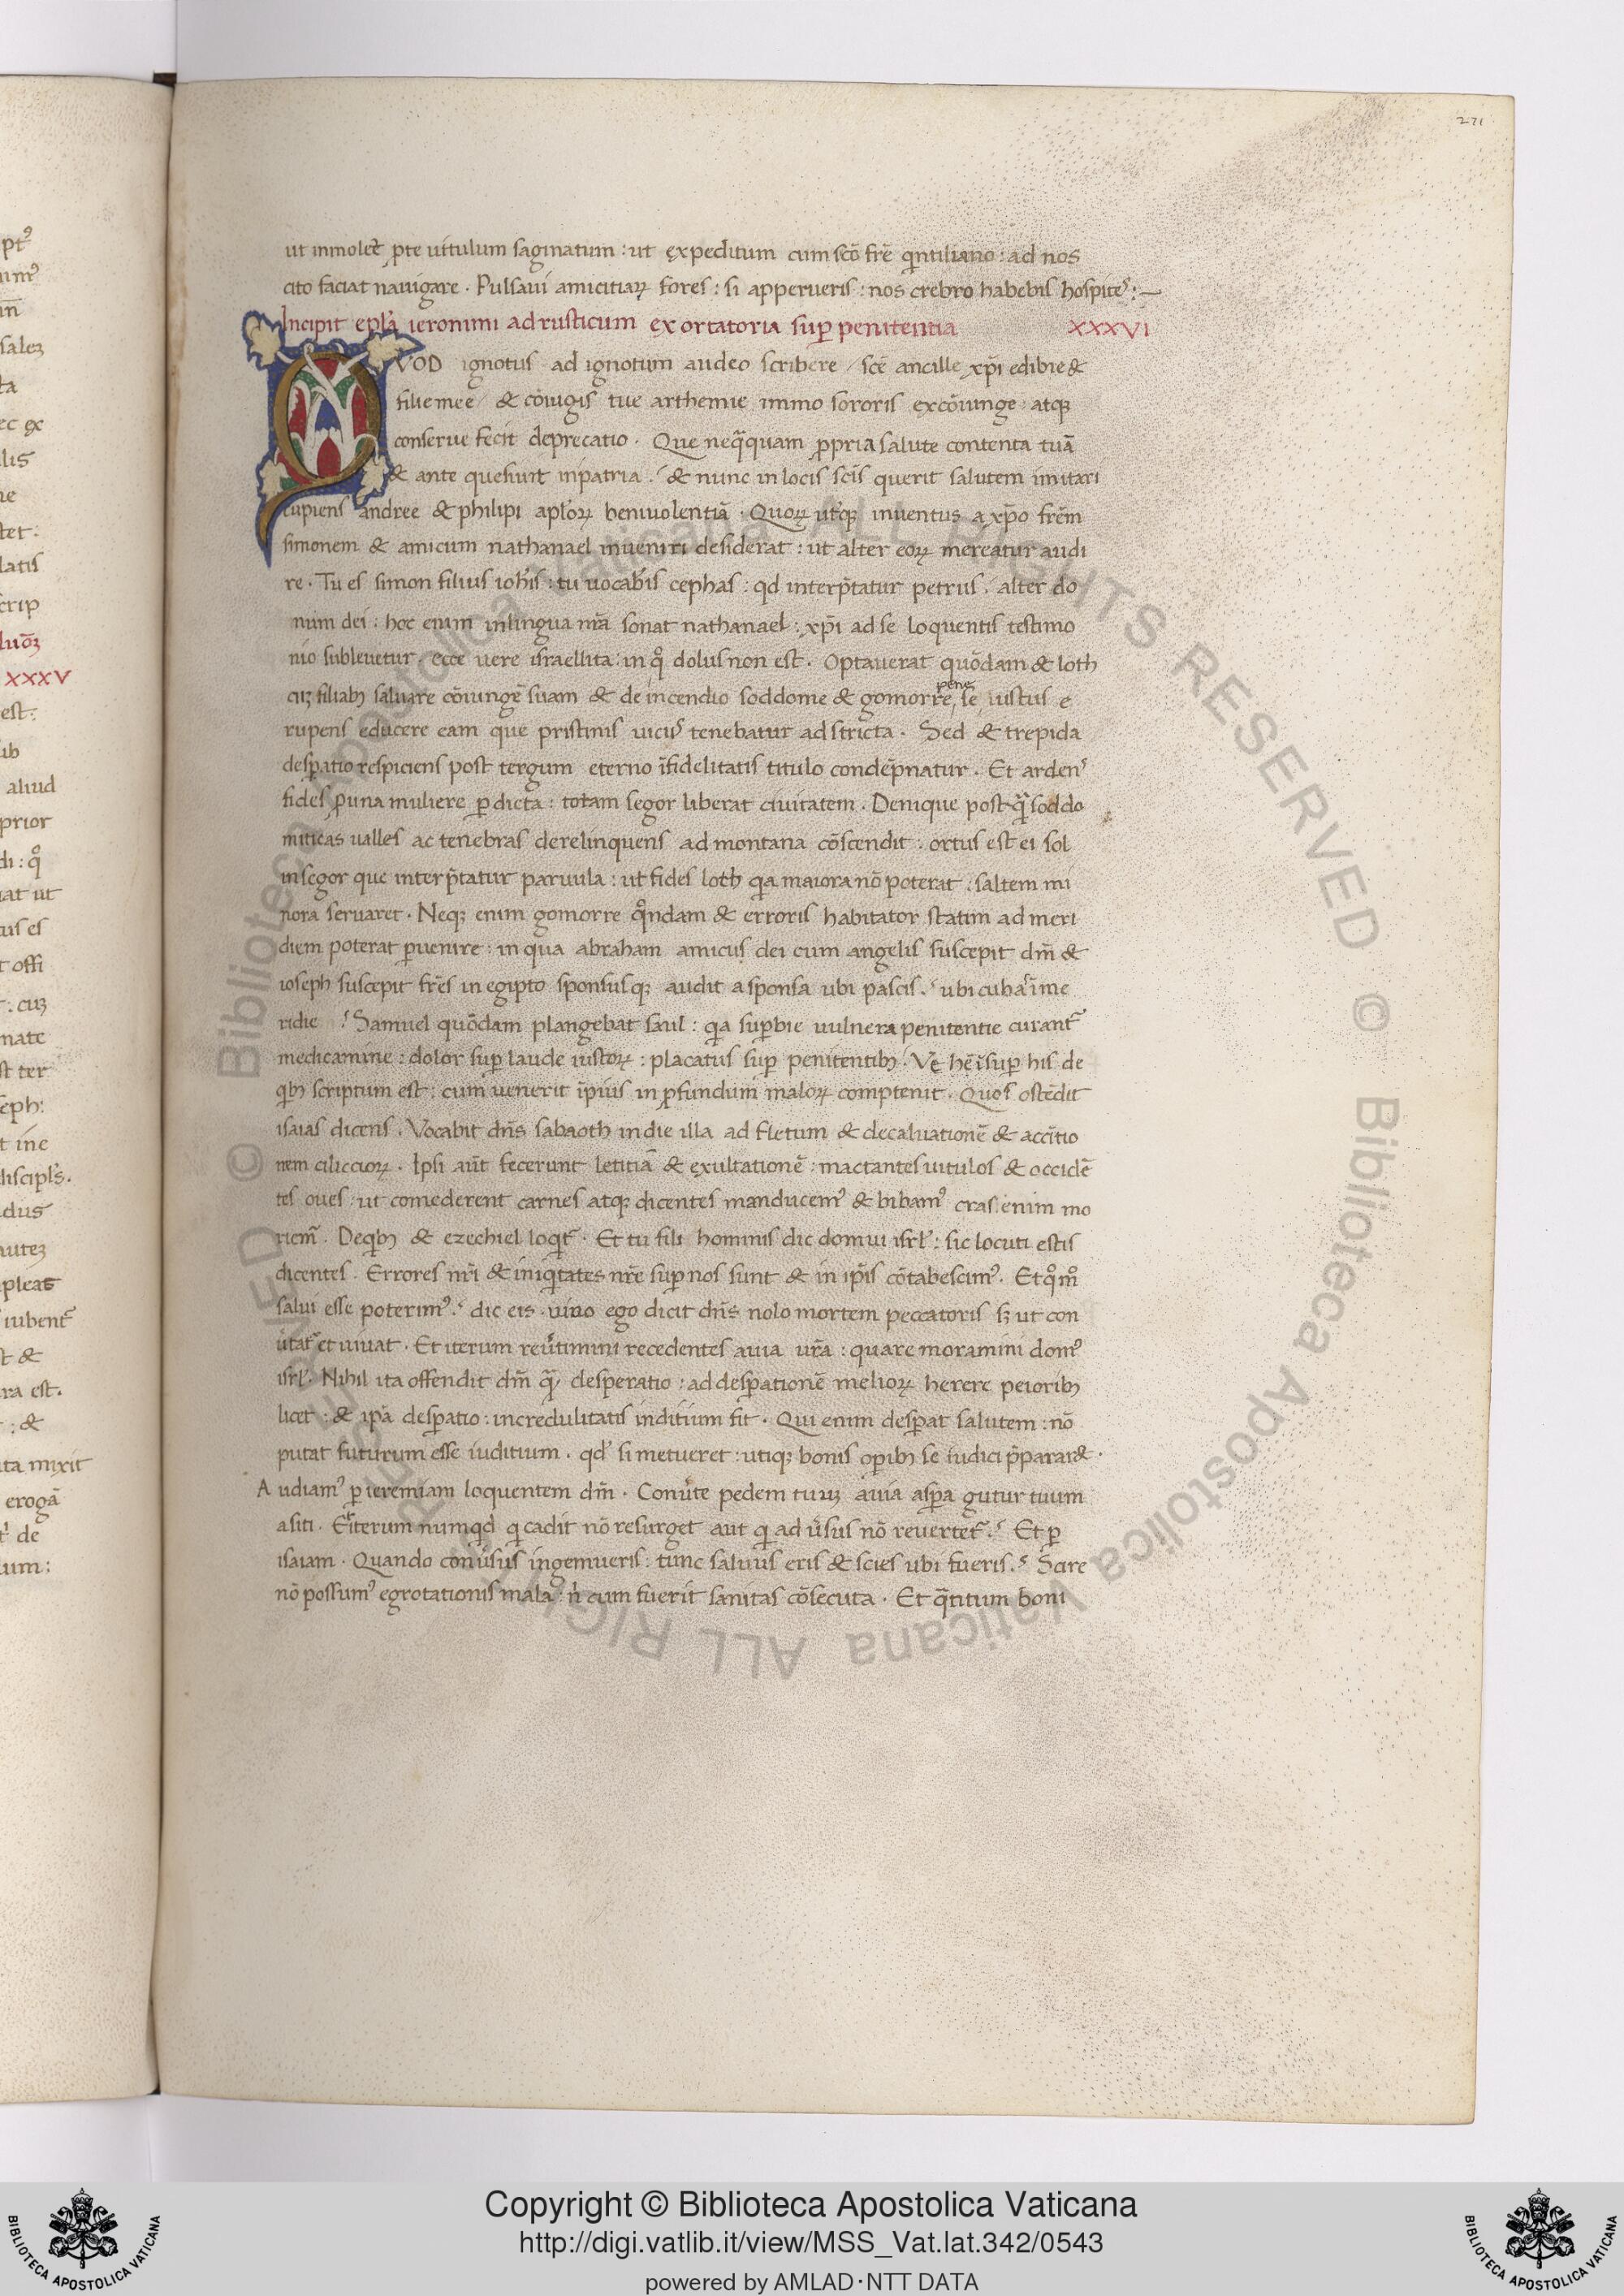 271
ut inmolet̄ ꝓte uitulum saginatum : ut expeditum cum scō frē qintiliano : ad nos
cito faciat nauigare . Pulsaui amicitiaꝝ fores : si apperueris : nos crebro habebis hospites :—
Incipit epl̄a ieronimi ad rusticum exortatoria suꝑ penitentia XXXVI
QVOD ignotus ad ignotum audeo scribere / scē ancille xp̄i edibie &
filie mee / & cōiugis tue arthemie immo sororis ex cōiunge : atqꝫ
conserue fecit deprecatio . Que neq̄quam ꝓpria salute contenta tuā
& ante quesiuit in patria . & nunc in locis scīs querit salutem imitari
cupiens andree & philipi apl̄oꝝ beniuolentiā . Quoꝝ ut̓qꝫ inuentus a xp̄o frēm
simonem & amicum nathanael inueniri desiderat : ut alter eoꝝ mereatur audi
re . Tu es simon filius ioh̄is : tu uocab̄is cephas : qd interp̄tatur petrus . alter do
num dei : hoc enim in lingua nr̄a sonat nathanael : xp̄i ad se loquentis testimo
nio subleuetur . ecce uere israellita : in qͦ dolus non est . Optauerat quōdam & loth
cuꝫ filiabꝫ saluare cōiungē suam & de incendio soddome & gomorre pene se iustus e
rupens educere eam que pristinis uiciis tenebatur adstricta . Sed & trepida
desꝑatio respiciens post tergum eterno īfidelitatis titulo condēpnatur . Et ardens
fides ꝓ una muliere ꝑdicta : totam segor liberat ciuitatem . Denique postq̄ soddo
miticas ualles ac tenebras derelinquens ad montana cōscendit : ortus est ei sol
in segor que interp̄tatur paruula : ut fides loth qia maiora nō poterat : saltem mi
nora seruaret . Neqꝫ enim gomorre qͦndam & erroris habitator statim ad meri
diem poterat ꝑuenire : in qua abraham amicus dei cum angelis suscepit dm̄ &
ioseph suscepit frēs in egipto sponsusqꝫ audit a sponsa ubi pascis . ubi cubas̄ ī me
ridie Samuel quōdam plangebat saul : qia suꝑbie uulnera penitentie curant᷑
medicamine : dolor suꝑ laude iustoꝝ : placatus suꝑ penitentibꝫ . Ve hēi suꝑ his de
qibꝫ scriptum est : cum uenerit īpius in ꝓfundum maloꝝ comptenit . Quos ostēdit
isaias dicens . Vocabit dn̄s sabaoth in die illa ad fletum & decaluationē & accītio
nem ciliccioꝝ . Ipsi aūt fecerunt letitiā & exultationē : mactantes uitulos & occidē
tes oues : ut comederent carnes atqꝫ dicentes manducemꝰ & bibamꝰ cras enim mo
riem᷑ . De qibꝫ & ezechiel loqit᷑ . Et tu fili hominis dic domui isrl̄ : sic locuti estis
dicentes . Errores nr̄i & iniqitates nr̄e suꝑ nos sunt & in ip̄is cōtabescimꝰ . Et qͦmͦ
salui esse poterimꝰ . dic eis . uiuo ego dicit dn̄s nolo mortem peccatoris sꝫ ut con
u̓tat᷑ et uiuat . Et iterum reu̓timini recedentes a uia ur̄a : quare moramini domꝰ
isrl̄ . Nihil ita offendit dm̄ q̄ desperatio : ad desꝑationē melioꝝ herere peioribꝫ
licet : & ip̄a desꝑatio : incredulitatis inditium fit . Qui enim desꝑat salutem : nō
putat futurum esse iuditium . qd̓ si metueret : utiqꝫ bonis oꝑibꝫ se iudici p̄parar& .
Audiamꝰ ꝑ ieremiam loquentem dm̄ . Conu̓te pedem tuuꝫ a uia asꝑa gutur tuum
a siti . Et iterum numqd qi cadit nō resurget aut qi ad u̓sus nō reuertet᷑ . Et ꝑ
isaiam . Quando conu̓sus ingemueris : tunc saluus eris & scies ubi fueris . Scire
nō possumꝰ egrotationis mala : n̄ cum fuerit sanitas cōsecuta . Et q̄titum boni
Copyright © Biblioteca Apostolica Vaticana
http://digi.vatlib.it/view/MSS_Vat.lat.342/0543
powered by AMLAD·NTT DATA